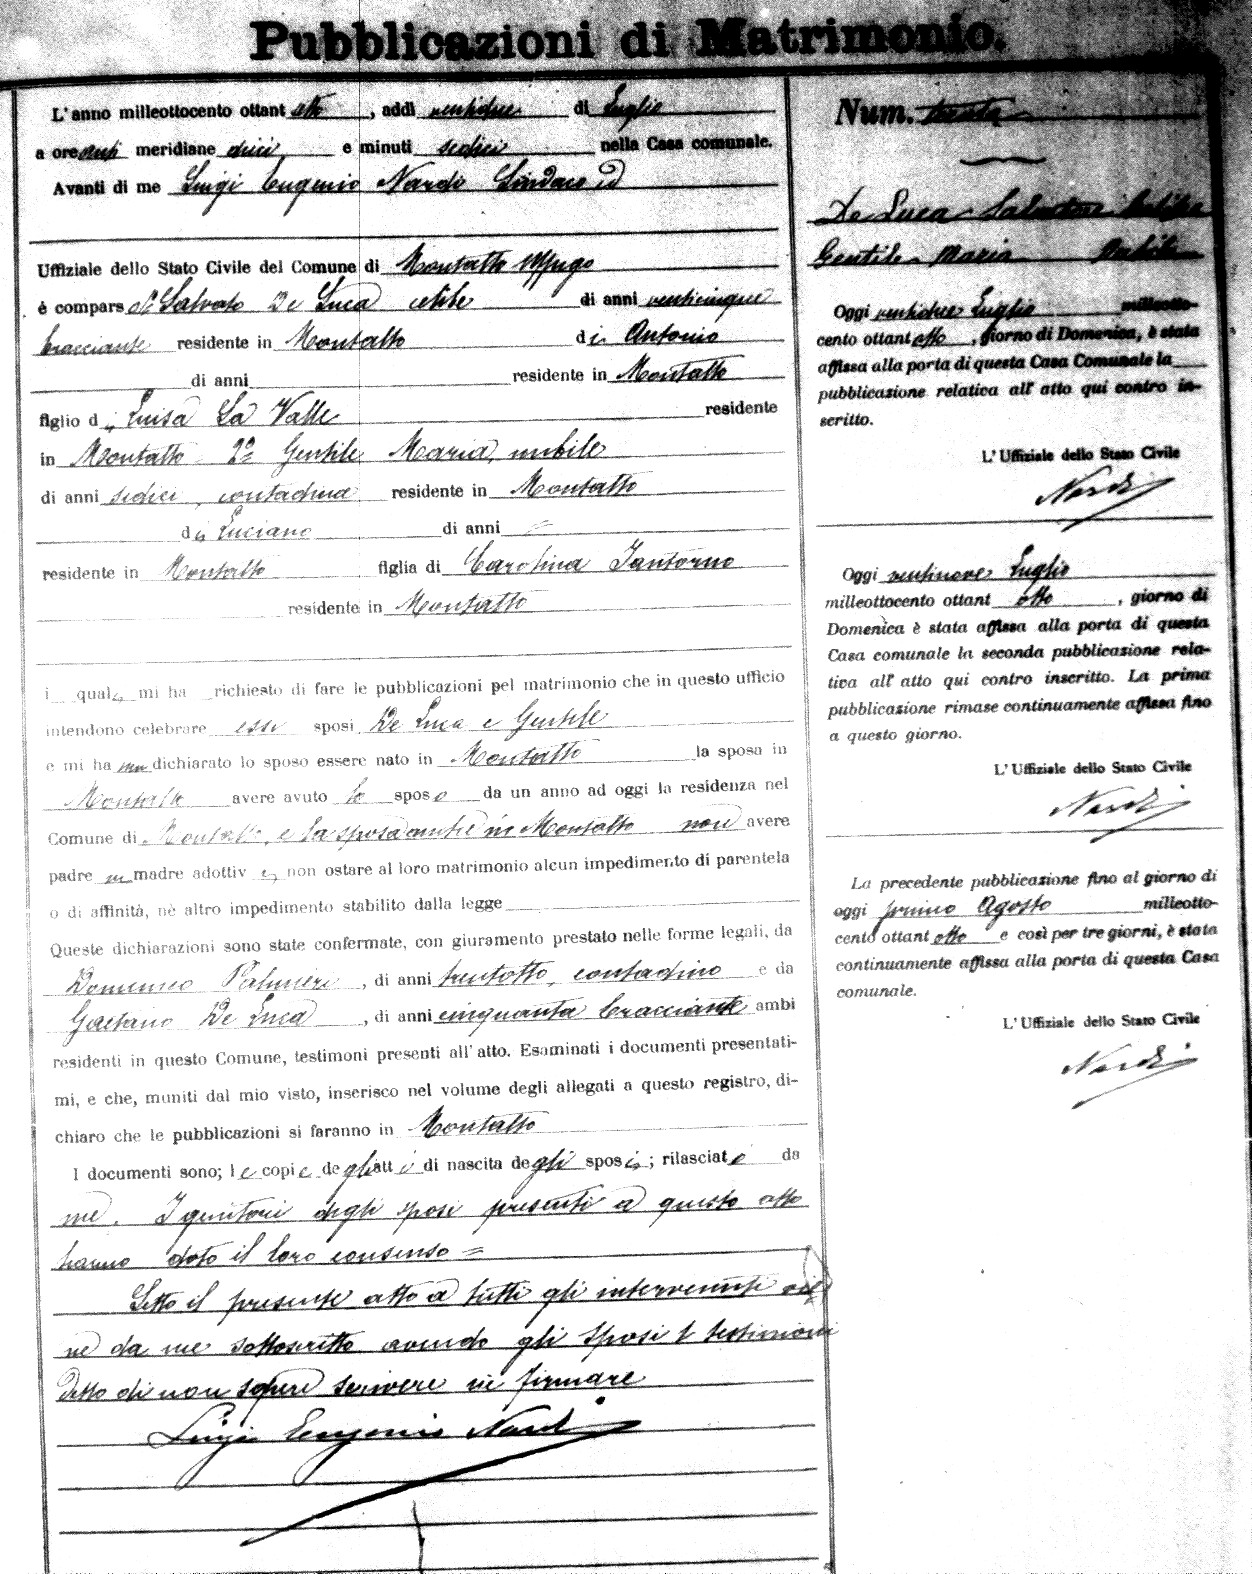 Pubblicazioni di Matrimonio.
L'anno milleottocento ottant otto, addi ventidue di Luglio
a ore anti meridiane dieci e minuti sedici nella Casa comunale.
Avanti di me Luigi Eugenio Nardi Sindaco ed
Uffiziale dello Stato Civile del Comune di Montalto Uffugo
è compars Salvato De Luca celibe di anni venticinque
bracciante residente in Montalto di Antonio
di anni residente in Montalto
figlio di Luisa La Valle residente
in Montalto 2º Gentile Maria, nubile
di anni sedici, contadina residente in Montalto
di Luciano di anni
residente in Montalto figlia di Carolina Iantorno
residente in Montalto
i quali mi ha richiesto di fare le pubblicazioni pel matrimonio che in questo ufficio
intendono celebrare essi sposi De Luca e Gentile
e mi ha nno dichiarato lo sposo essere nato in Montalto la sposa in
Montalto avere avuto lo sposo da un anno ad oggi la residenza nel
Comune di Montalto, e la sposa anche in Montalto non avere
padre nè madre adottivi e, non ostare al loro matrimonio alcun impedimento di parentela
o di affinità, nè altro impedimento stabilito dalla legge
Queste dichiarazioni sono state confermate, con giuramento prestato nelle forme legali, da
Domenico Palmieri, di anni trentotto, contadino e da
Gaetano De Luca, di anni cinquanta bracciante ambi
residenti in questo Comune, testimoni presenti all'atto. Esaminati i documenti presentati-
mi, e che, muniti dal mio visto, inserisco nel volume degli allegati a questo registro, di-
chiaro che le pubblicazioni si faranno in Montalto
I documenti sono; le copie degli atti di nascita degli sposi; rilasciate da
me. I genitori degli sposi presenti a questo atto
hanno dato il loro consenso =
Letto il presente atto a tutti gli intervenuti vie
ne da me sottoscritto avendo gli sposi e testimoni
detto di non sapere scrivere nè firmare
Luigi Eugenio Nardi
Num. trenta
De Luca Salvatore
Gentile Maria
Oggi ventidue Luglio milleotto-
cento ottant otto, giorno di Domenica, è stata
affissa alla porta di questa Casa Comunale la
pubblicazione relativa all'atto qui contro in-
scritto.
L'Uffiziale dello Stato Civile
Nardi
Oggi ventinove Luglio
milleottocento ottant otto, giorno di
Domenica è stata affissa alla porta di questa
Casa comunale la seconda pubblicazione rela-
tiva all'atto qui contro inscritto. La prima
pubblicazione rimase continuamente affissa fino
a questo giorno.
L'Uffiziale dello Stato Civile
Nardi
La precedente pubblicazione fino al giorno di
oggi primo Agosto milleotto-
cento ottant otto e così per tre giorni, è stata
continuamente affissa alla porta di questa Casa
comunale.
L'Uffiziale dello Stato Civile
Nardi